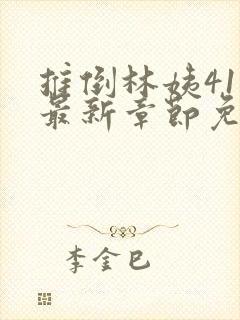 推倒林姨41
最新章节免
李金巳